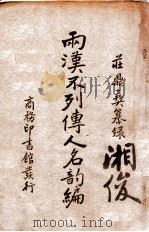 莊鼎彝纂録
湘俊
兩漢不列傳人名韵編
商務印書館發行